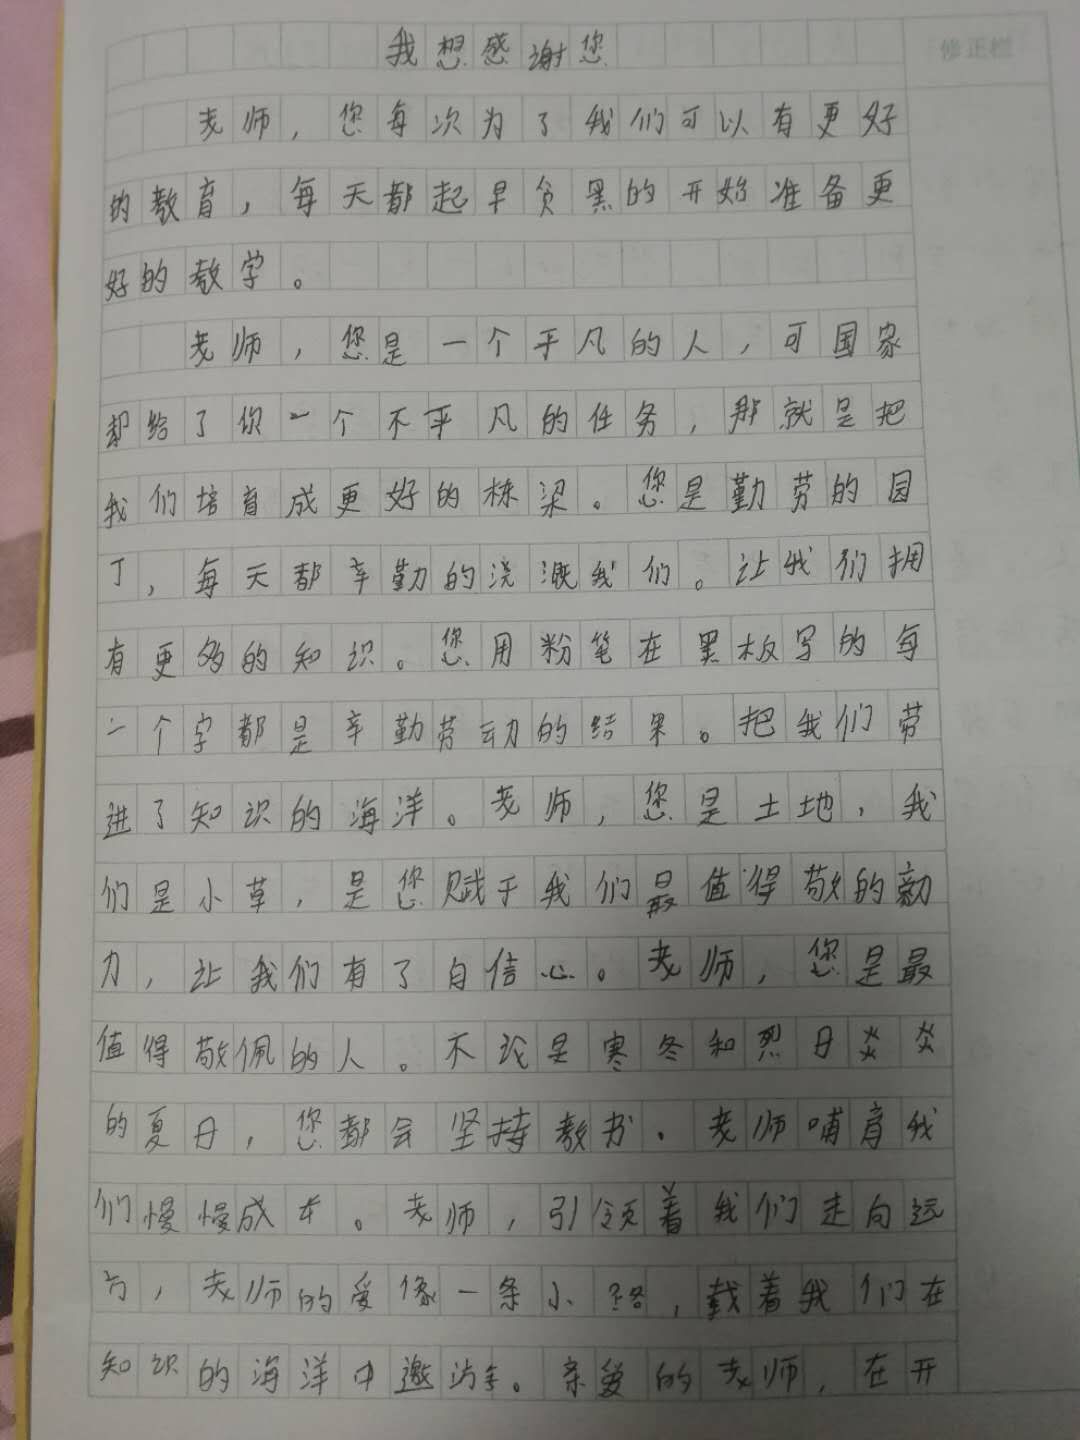 我想感谢您
修正栏
老师，您每次为了我们可以有更好
的教育，每天都起早贪黑的开始准备更
好的教学。
老师，您是一个平凡的人，可国家
却给了你一个不平凡的任务，那就是把
我们培育成更好的栋梁。您是勤劳的园
丁，每天都辛勤的浇溉我们。让我们拥
有更多的知识。您用粉笔在黑板写的每
一个字都是辛勤劳动的结果。把我们带
进了知识的海洋。老师，您是土地，我
们是小草，是您赋于我们最值得敬的
力，让我们有了自信心。老师，您是最
值得敬佩的人。不论是寒冬和烈日炎炎
的夏日，您都会坚持教书。老师哺育我
们慢慢成才。老师，引领着我们走向远
方，老师的爱像一条小路，载着我们在
知识的海洋中遨游。亲爱的老师，在开